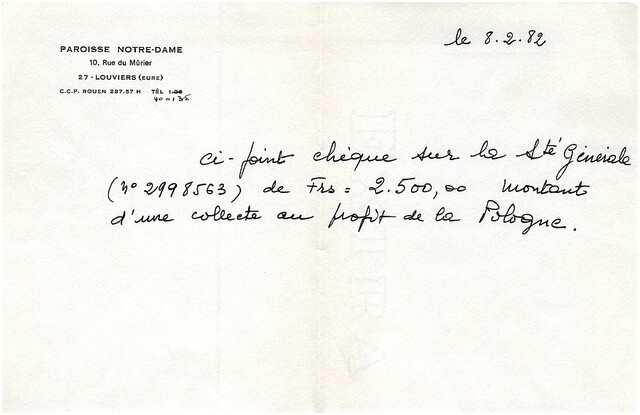 le 8.2.82
PAROISSE NOTRE-DAME
10, Rue du Mûrier
27 - LOUVIERS (EURE)
C.C.P. ROUEN 287.57 H TÉL
ci-joint chèque sur la Sté Générale
(n° 2998563) de Frs = 2.500,00 montant
d'une collecte au profit de la Pologne.